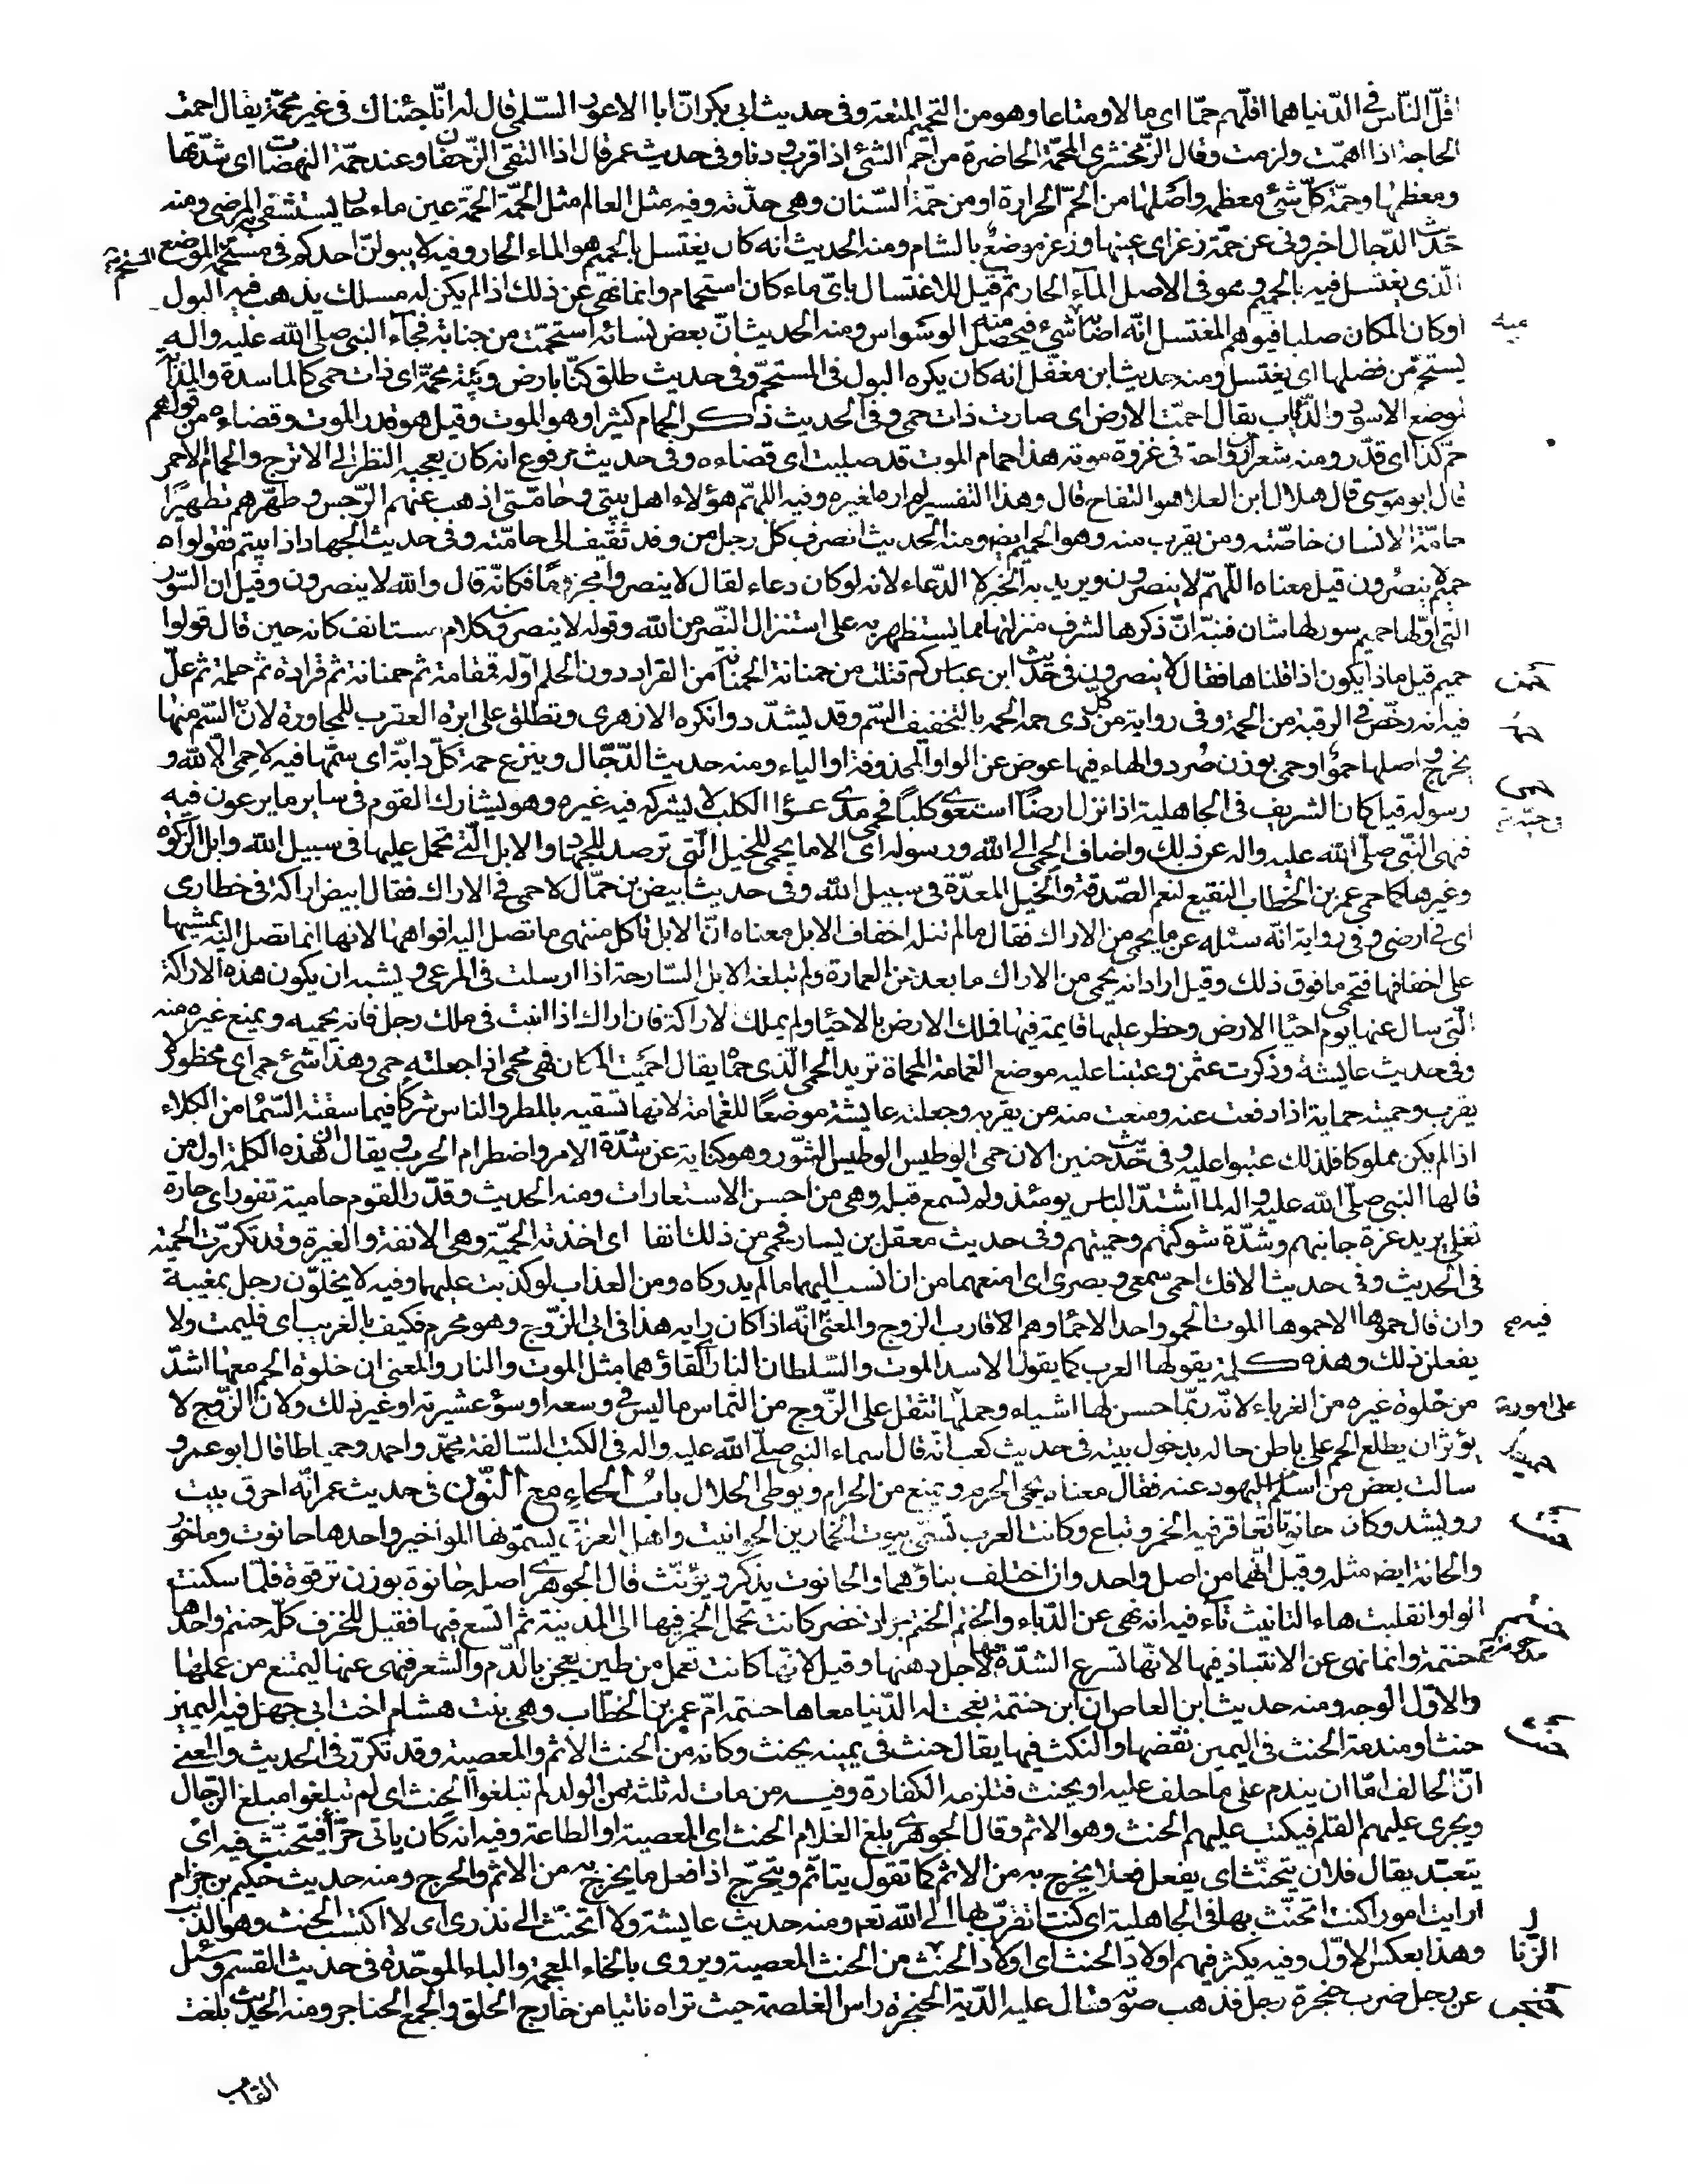 اقلّ النّاس فى الدّنيا هما اقلّهم حمّا اى مالا ومتاعا وهو من التحميم المتعة وفى حديث ابى بكر انّ ابا الاعور السّلمى قال له انّا جئناك فى غير محمّة يقال احمت
الحاجة اذا اهمّت ولزمت وقال الزّمخشرى المحمّة الحاضرة من احمّ الشئ اذا قرب ودنا وفى حديث عمر قال اذا التقى الزّحفان وعند حمّة النهضات اى شدّتها
ومعظمها وحمّة كلّ شئ معظمه واصلها من الحمّ الحرارة او من حمّة السّنان وهى حدّته وفيه مثل العالم مثل الحمّة الحمّة عين ماء حار يستشفى به المرضى ومنه
حديث الدّجال اخبرونى عن حمّة زغر اى عينها وزغر موضع بالشام ومنه الحديث انه كان يغتسل بالحميم هو الماء الحار وفيه لا يبولنّ احدكم فى مستحمّه الموضع
الّذى يغتسل فيه بالحميم وهو فى الاصل المآء الحار ثم قيل للاغتسال باىّ ماء كان استحمام وانما نهى عن ذلك اذا لم يكن له مسلك يذهب فيه البول
او كان المكان صلبا فيوهم المغتسل انّه اصابه شئ فيحصل منه الوسواس ومنه الحديث انّ بعض نسائه استحمّت من جنابة فجآء النبى صلى الله عليه واله
يستحمّ من فضلها اى يغتسل ومنه حديث ابن مغفّل انه كان يكره البول فى المستحمّ وفى حديث طلق كنّا بارض وبئة محمّة اى ذات حمى كالماسدة والمذابة
لموضع الاسود والذّئاب يقال احمّت الارض اى صارت ذات حمى وفى الحديث ذكر الحمام كثيرا وهو الموت وقيل هو قدر الموت وقضاءه من قولهم
حمّ كذا اى قدّر ومنه شعر ابن رواحة فى غزوة موتة هذا حمام الموت قد صليت اى قضاءه وفى حديث مرفوع انه كان يعجبه النظر الى الاترج والحمام الاحمر
قال ابو موسى قال هلال ابن العلا هو التفاح قال وهذا التفسير لم اره لغيره وفيه اللهمّ هؤلاء اهل بيتى وحامّتى اذهب عنهم الرّجس وطهّرهم تطهيرًا
حامّة الانسان خاصّته ومن يقرب منه وهو الحميم ايضا ومنه الحديث انصرف كلّ رجل من وفد ثقيف الى حامّته وفى حديث الجهاد اذا بيّتم فقولوا
حم لا ينصرون قيل معناه اللهمّ لا ينصرون ويريد به الخبر لا الدّعاء لانه لو كان دعاء لقال لا ينصروا مجزومًا فكانّه قال والله لا ينصرون وقيل ان السّور
التى اوّلها حميم سور لها شان فنبّه انّ ذكرها لشرف منزلتها مما يستظهر به على استنزال النّصر من الله وقوله لا ينصرون كلام مستانف كانه حين قال قولوا
حميم قيل ماذا يكون اذا قلناها فقال لا ينصرون فى حديث ابن عباس كم قتلت من حمنانة الحمنانة من القراد دون الحلم اوّله قمقامة ثم حمنانة ثم قرادة ثم حلمة ثم علّ
فيه انه رخّص فى الرقية من الحمة وفى رواية من كلّ ذى حمه الحمه بالتخفيف السّم وقد يشدّد وانكره الازهرى وتطلق على ابرة العقرب للمجاورة لانّ السّم منها
يخرج واصلها حمؤ او حمى بوزن صُرد والهاء فيها عوض عن الواو المحذوفة او الياء ومنه حديث الدّجّال وينزع حمة كلّ دابّة اى سمّها فيه لا حمى الّا لله و
رسوله قيل كان الشريف فى الجاهلية اذا نزل ارضًا استعوى كلبًا فحمى مدى عوا الكلب لا يشركه فيه غيره وهو يشارك القوم فى ساير ما يرعون فيه
فنهى النّبى صلّى الله عليه واله عن ذلك واضاف الحمى الى الله ورسوله اى الا ما يحمى للخيل الّتى ترصد للجهاد والابل الّتى تحمل عليها فى سبيل الله وابل الزكوة
وغيرها كما حمى عمر بن الخطاب النقيع لنعم الصّدقة والخيل المعدّة فى سبيل الله وفى حديث ابيض بن حمّال لا حمى فى الاراك فقال ابيض اراكة فى خطارى
اى فى ارضى وفى رواية انّه سئله عن ما يحمى من الاراك فقال ما لم تنله اخفاف الابل معناه انّ الابل تاكل منتهى ما تصل اليه افواهها لانها انما تصل اليه بمشيها
على اخفافها فتحمى ما فوق ذلك وقيل اراد انه يحمى من الاراك ما بعد عن العمارة ولم تبلغه الابل السّارحة اذا ارسلت فى المرعى ويشبه ان يكون هذه الاراكة
الّتى سال عنها يوم احيا الارض وحظر عليها قايمة فيها فملك الارض بالاحيا ولم يملك الاراكة فان اراك اذا انبت فى ملك رجل فانه يحميه ويمنع غيره منه
وفى حديث عايشة وذكرت عثمن وعتبنا عليه موضع الغمامة المحماة تريد الحمى الّذى حماه يقال احميت المكان فهى محمى اذا جعلته حمى وهذا شئ حمى اى محظور لا
يقرب وحميته حماية اذا دفعت عنه ومنعت منه من يقربه وجعلته عايشة موضعًا للغمامة لانها تسقيه بالمطر والناس شركا فيما سقته السّماء من الكلاء
اذا لم يكن مملوكا فلذلك عتبوا عليه وفى حديث حنين الان حمى الوطيس الوطيس التنّور وهو كناية عن شدّة الامر واضطرام الحرب ويقال انّ هذه الكلمة اول من
قالها النبى صلّى الله عليه واله لما اشتدّ الباس يومئذ ولم تسمع قبله وهى من احسن الاستعارات ومنه الحديث وقدر القوم حامية تفور اى حارة
تغلى يريد عزة جانبهم وشدّة شوكتهم وحميتهم وفى حديث معقل بن يسار فحمى من ذلك انفا اى اخذته الحميّة وهى الانفة والغيرة وقد تكرّرت الحميّة
فى الحديث وفى حديث الافك احمى سمعى وبصرى اى امنعهما من ان انسب اليهما ما لم يدركاه ومن العذاب لو كذبت عليهما وفيه لا يخلونّ رجل بمغيبة
وان قال حموها الا حموها الموت الحمو واحد الاحماء وهم الاقارب الزوج والمعنى انّه اذا كان رايه هذا فى ابى الزّوج وهو محرم فكيف بالغريب اى فليمت ولا
يفعلن ذلك وهذه كلمة يقولها العرب كما يقول الاسد الموت والسّلطان النار اى لقاؤهما مثل الموت والنار والمعنى ان خلوة الحم معها اشدّ
من خلوة غيره من الغرباء لانّه ربّما حسن لها اشياء وحملها على امور تثقل على الزّوج من التماس ما ليس فى وسعه او سوء عشيرته او غير ذلك ولانّ الزّوج لا
يؤثر ان يطلع الحم على باطن حاله بدخول بيته فى حديث كعب انّه قال اسماء النبى صلّى الله عليه واله فى الكتب السّالفة محمّد واحمد وحمياطا قال ابو عمرو
سالت بعض من اسلم من اليهود عنه فقال معناه يحمى الحرم ويمنع من الحرام ويوطى الحلال باب الحاء مع النّون فى حديث عمر انّه احرق بيت
رويشد وكان حانوتا تعاقر فيه الخمر وتباع وكانت العرب تسمّى بيوت الخمارين الحوانيت واهل العراق يسمّونها المواخير واحدها حانوت وماخور
والحانة ايضا مثله وقيل انّهما من اصل واحد وان اختلف بناؤهما والحانوت يذكر ويؤنّث قال الجوهرى اصله حانوة بوزن ترقوة فلمّا سكنت
الواو انقلبت هاء التانيث تآء فيه انه نهى عن الدّباء والحنتم الحنتم جرار خضر كانت تحمل الخمر فيها الى المدينة ثم اتسع فيها فقيل للخزف كلّه حنتم واحدها
حنتمة وانما نهى عن الانتباذ فيها لانّها تسرع الشدّة فيها لاجل دهنها وقيل لانّها كانت تعمل من طين يعجن بالدّم والشعر فنهى عنها ليمتنع من عملها
والاوّل الوجه ومنه حديث ابن العاص ان ابن حنتمة بعجت له الدّنيا معاها حنتمه امّ عمر بن الخطّاب وهى بنت هشام اخت ابى جهل فيه اليمين
حنث او مندمة الحنث فى اليمين نقضها والنكث فيها يقال حنث فى يمينه يحنث وكانّه من الحنث الاثم والمعصية وقد تكرّر فى الحديث والمعنى
انّ الحالف امّا ان يندم على ما حلف عليه او يحنث فتلزمه الكفارة وفيه من مات له ثلثة من الولد لم تبلغوا الحنث اى لم تبلغوا مبلغ الرّجال
ويجرى عليهم القلم فيكتب عليهم الحنث وهو الاثم وقال الجوهرى بلغ الغلام الحنث اى المعصية او الطاعة وفيه انه كان ياتى حرّا فيتحنّث فيه اى
يتعبّد يقال فلان يتحنّث اى يفعل فعلا يخرج به من الاثم كما تقول يتاثّم ويتحرّج اذا فعل ما يخرج به من الاثم والحرج ومنه حديث حكيم بن حزام
ارايت امورا كنت اتحنّث بها فى الجاهلية اى كنت اتقرّب بها الى الله تعم ومنه حديث عايشة ولا اتحنّث الى نذرى اى لا اكتسب الحنث وهو الذّنب
وهذا بعكس الاوّل وفيه يكثر فيهم اولاد الحنث اى اولاد الزّنا من الحنث المعصية ويروى بالخاء المعجمة والباء الموحّدة فى حديث القسم وسئل
عن رجل ضرب حنجرة رجل فذهب صوته فقال عليه الدّية الحنجرة راس الغلصمة حيث تراه ناتيا من خارج الحلق والجمع الحناجر ومنه الحديث بلغت